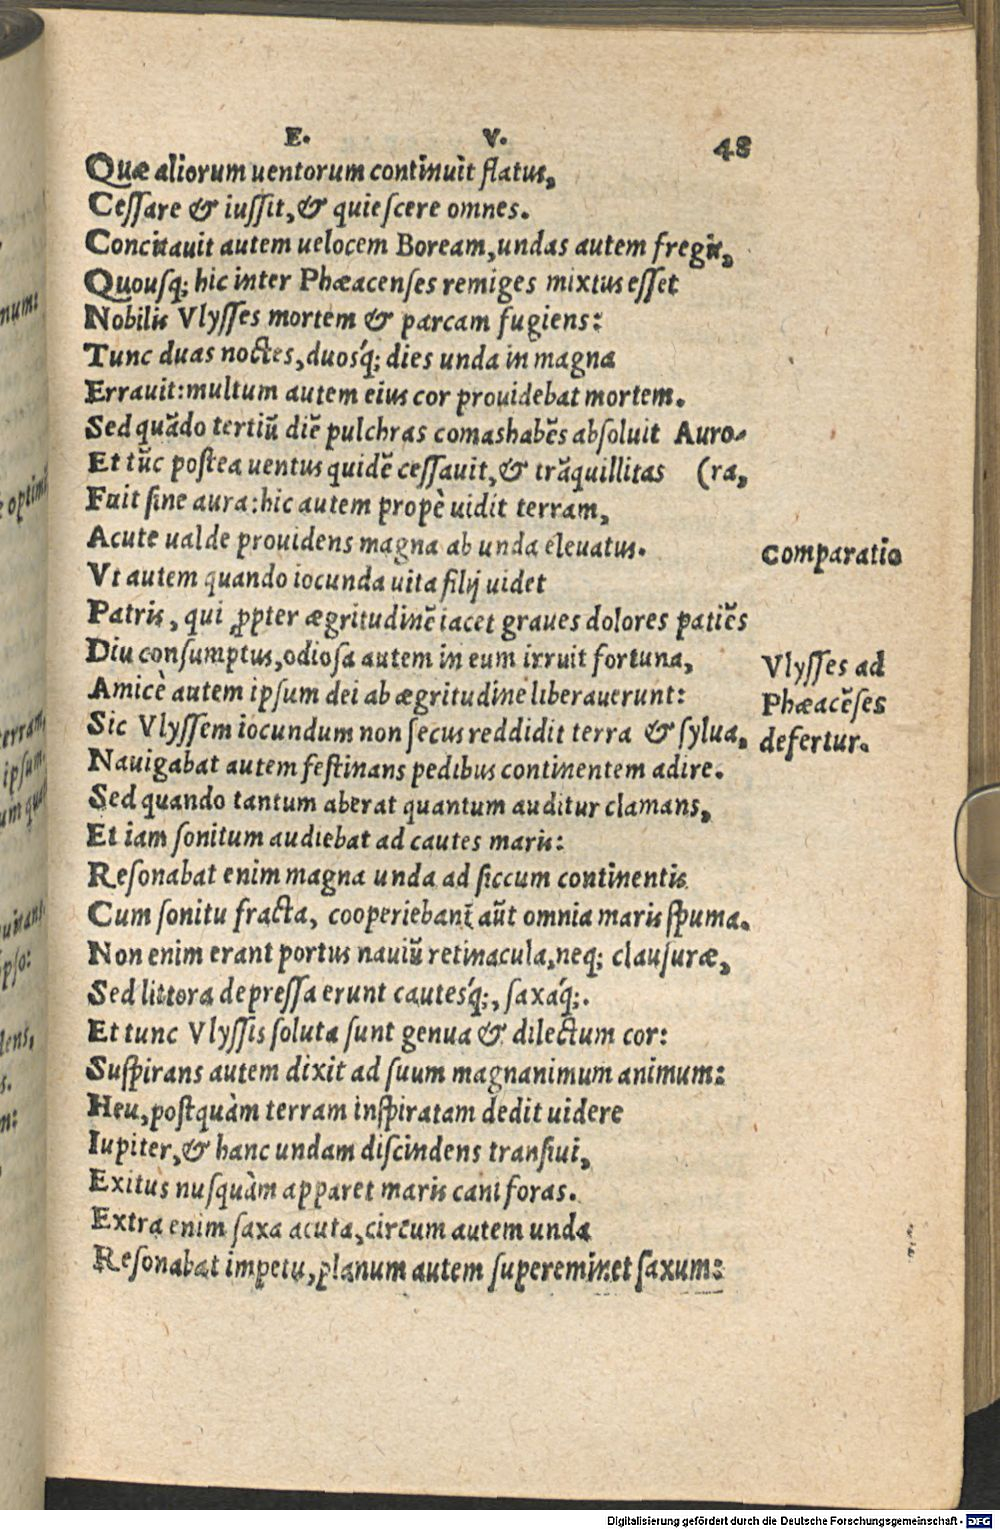 E. V. 48
Quæ aliorum uentorum continuit flatus,
Ceſſare & iuſſit, & quieſcere omnes.
Concitauit autem uelocem Boream, undas autem fregit,
Quouſq; hic inter Phæacenſes remiges mixtus eſſet
Nobilis Vlyſſes mortem & parcam fugiens:
Tunc duas noctes, duosq́; dies unda in magna
Errauit: multum autem eius cor prouidebat mortem.
Sed quãdo tertiũ diẽ pulchras comas habẽs abſoluit Auro-
Et tũc poſtea uentus quidẽ ceſſauit, & trãquillitas (ra,
Fuit ſine aura: hic autem propè uidit terram,
Acute ualde prouidens magna ab unda eleuatus.
Comparatio
Vt autem quando iocunda uita filij uidet
Patris, qui ꝓpter ægritudinẽ iacet graues dolores patiẽs
Diu conſumptus, odioſa autem in eum irruit fortuna,
Vlyſſes ad
Amicè autem ipſum dei ab ægritudine liberauerunt:
Phæacẽſes
Sic Vlyſſem iocundum non ſecus reddidit terra & ſylua,
defertur.
Nauigabat autem feſtinans pedibus continentem adire.
Sed quando tantum aberat quantum auditur clamans,
Et iam ſonitum audiebat ad cautes maris:
Reſonabat enim magna unda ad ſiccum continentis
Cum ſonitu fracta, cooperiebanť aũt omnia maris ſpuma.
Non enim erant portus nauiũ retinacula, neq; clauſuræ,
Sed littora depreſſa erunt cautesq́;, ſaxaq́;.
Et tunc Vlyſſis ſoluta ſunt genua & dilectum cor:
Suſpirans autem dixit ad ſuum magnanimum animum:
Heu, poſtquàm terram inſpiratam dedit uidere
Iupiter, & hanc undam diſcindens tranſiui,
Exitus nuſquàm apparet maris cani foras.
Extra enim ſaxa acuta, circum autem unda
Reſonabat impetu, planum autem ſupereminet ſaxum:
num:
optimũ
terram,
ipſum,
um
ipſo:
s.
Digitalisierung gefördert durch die Deutsche Forschungsgemeinschaft - DFG